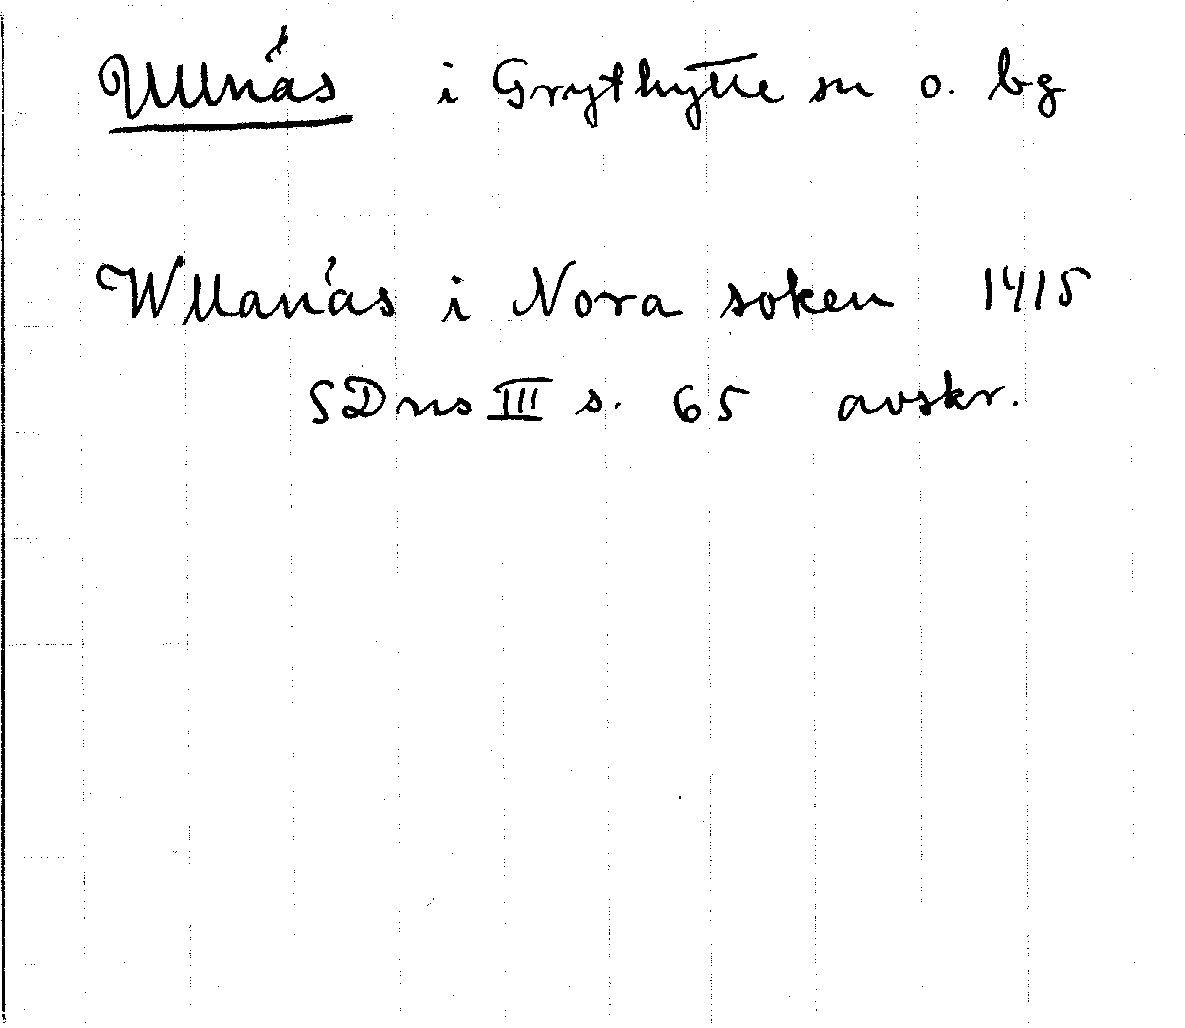 Ullnäs i Grythytte sn o. bg
Wllanäs i Nora soken 1415
SDns III s. 65 avskr.